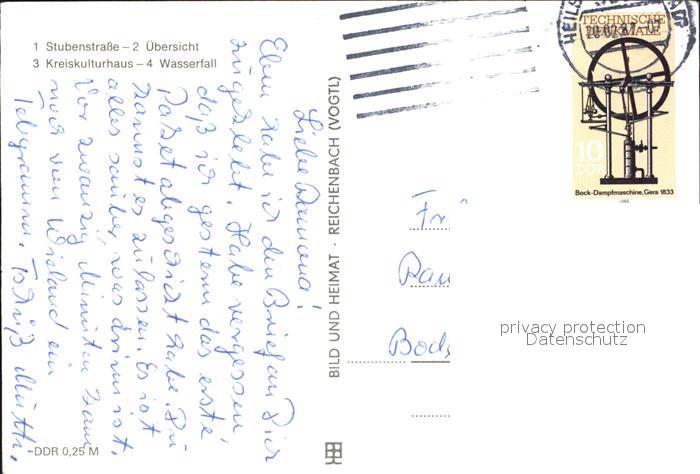 1 Stubenstraße – 2 Übersicht
3 Kreiskulturhaus – 4 Wasserfall
Liebe
Eben habe ich den Brief an Dich
zugeklebt. Habe vergessen
daß ich gestern das erste
Paket abgeschickt habe. Du
kannst es zulassen. Es ist
alles sauber was drin ist.
Vor zwanzig Minuten kam
noch von Wieland ein
Telegramm. Mutti.
DDR 0,25 M
BILD UND HEIMAT · REICHENBACH (VOGTL)
TECHNISCHE
DENKMALE
10
DDR
Bock-Dampfmaschine, Gera 1833
privacy protection
Datenschutz